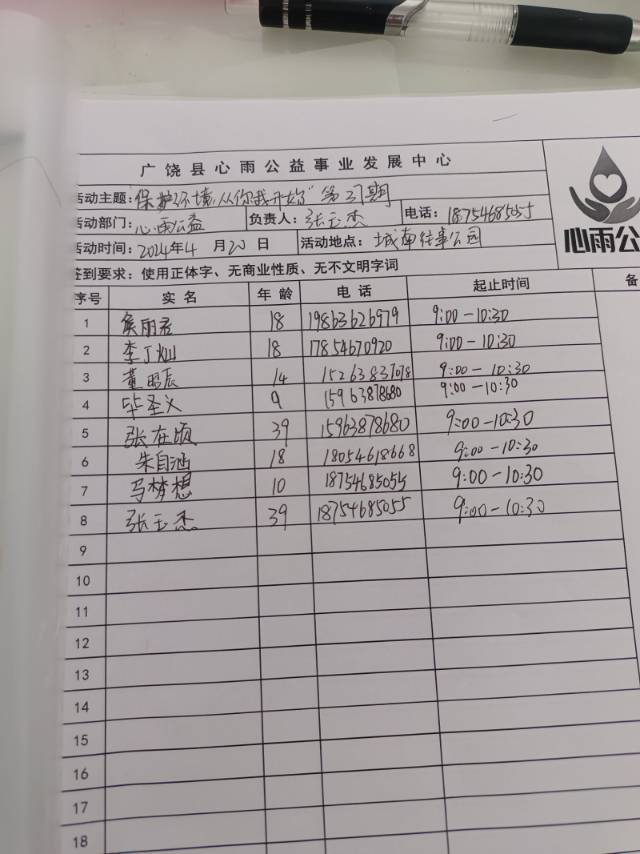 广饶县心雨公益事业发展中心
活动主题:"保护环境,从你我开始"第21期
活动部门: 心雨公益 负责人: 张玉杰 电话: 18754685055
活动时间: 2024年4月20日 活动地点: 城南往事公园
签到要求: 使用正体字、无商业性质、无不文明字词
心雨公
序号 实名 年龄 电话 起止时间 备
1 侯雨君 18 19863626979 9:00-10:30
2 李丁灿 18 17854670920 9:00-10:30
3 董昭辰 14 15263837078 9:00-10:30
4 毕圣义 9 15963878680 9:00-10:30
5 张在顷 39 15963878680 9:00-10:30
6 朱自涵 18 18054618668 9:00-10:30
7 马梦想 10 18754685055 9:00-10:30
8 张玉杰 39 18754685055 9:00-10:30
9
10
11
12
13
14
15
16
17
18